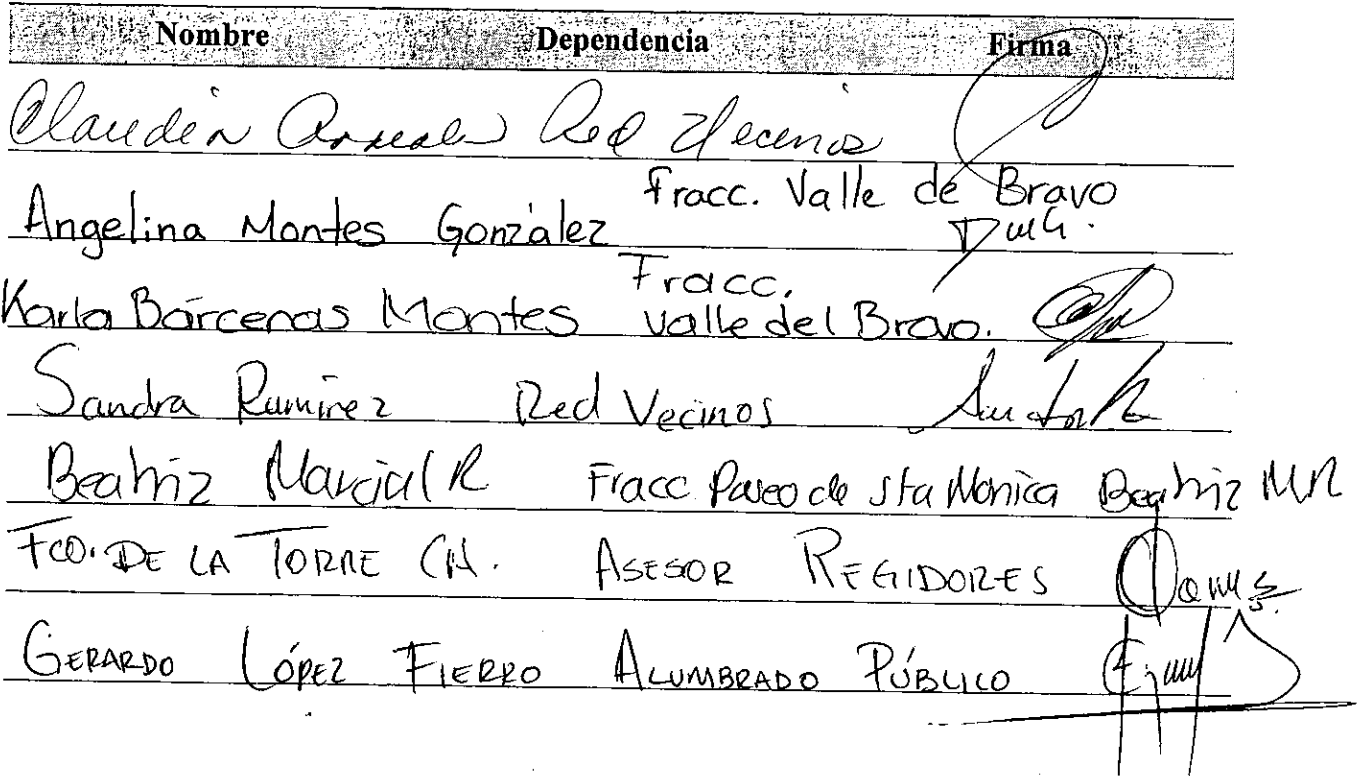 Nombre Dependencia Firma
Claudia Red Vecinos
Fracc. Valle de Bravo
Angelina Montes González
Fracc.
Karla Bárcenas Montes Valle del Bravo.
Sandra Ramirez Red Vecinos
Beatriz Marcial R Fracc Paseo de sta Monica Beatriz MR
FCO. DE LA TORRE CH. ASESOR REGIDORES
GERARDO LÓPEZ FIERRO ALUMBRADO PÚBLICO